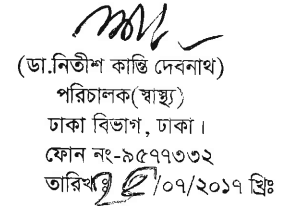 (ডা.নিতীশ কান্তি দেবনাথ)
পরিচালক(স্বাস্থ্য)
ঢাকা বিভাগ, ঢাকা।
ফোন নং-৯৫৭৭৩৩২
তারিখঃ /০৭/২০১৭ খ্রিঃ